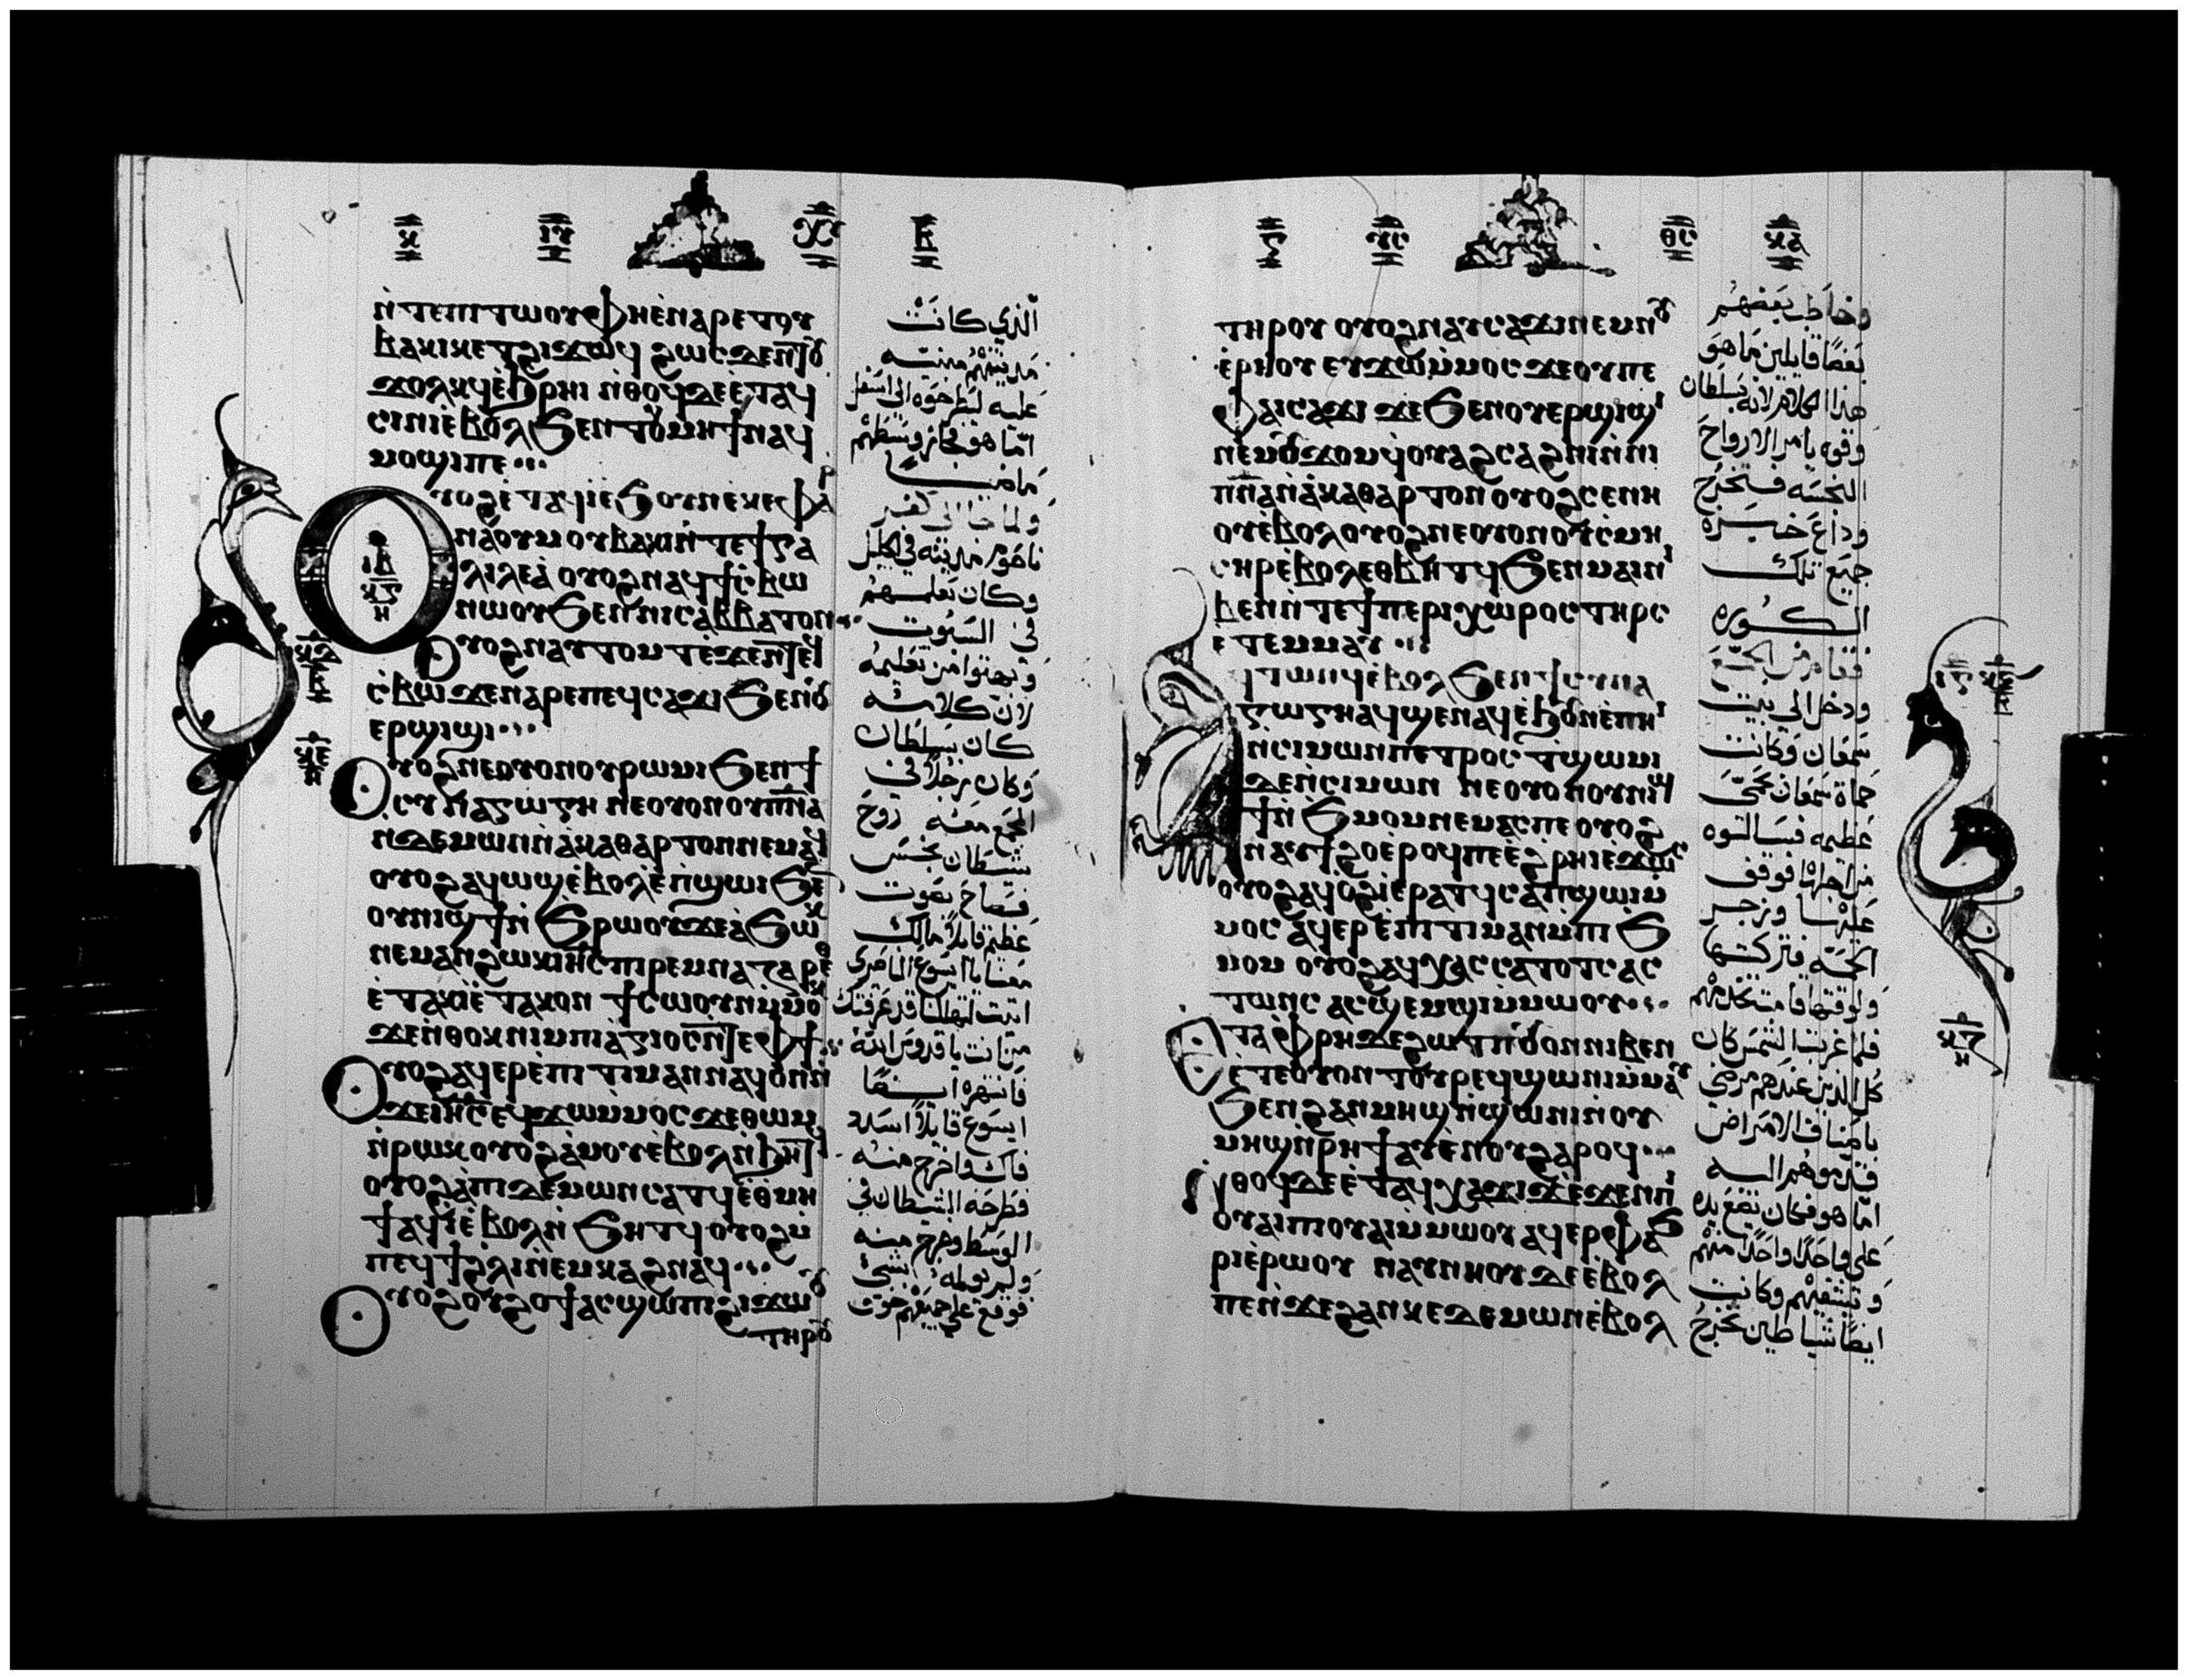 ⲛ̀ⲧⲉⲡⲓⲧⲱⲟⲩⲫⲏⲉⲛⲁⲣⲉⲧⲟⲩ
ⲃⲁⲕⲓⲕⲉⲧϩⲓϫⲱϥ ϩⲱⲥϫⲉⲛ̀ⲧⲟⲩ
ϫⲟⲗⲕϥⲉ̀ϧⲣⲏⲓ ⲛ̀ⲑⲟϥⲇⲉⲉ̀ⲧⲁϥ
ⲥⲓⲛⲓⲉ̀ⲃⲟⲗϧⲉⲛⲧⲟⲩⲙⲏϯⲛⲁϥ
ⲙⲟϣⲓⲡⲉ
ⲟⲩⲟϩⲉ̀ⲧⲁϥⲓ̀ⲉ̀ϧⲟⲩⲛⲉⲕⲉⲫⲁⲣ
ⲛⲁⲟⲩⲙ ⲟⲩⲃⲁⲕⲓⲛ̀ⲧⲉϯⲅⲁ
ⲗⲓⲗⲉⲁ̀ ⲟⲩⲟϩⲛⲁϥϯⲥ̀ⲃⲱ
ⲛⲱⲟⲩϧⲉⲛⲛⲓⲥⲁⲃⲃⲁⲧⲟⲛ
ⲟⲩⲟϩⲛⲁⲩⲧⲟⲙⲧⲉ̀ϫⲉⲛⲧⲉϥ
ⲥ̀ⲃⲱ ϫⲉⲛⲁⲣⲉⲡⲉϥⲥⲁϫⲓϧⲉⲛⲟⲩ
ⲉⲣϣⲓϣⲓ
ⲟⲩⲟϩⲛⲉⲟⲩⲟⲛⲟⲩⲣⲱⲙⲓϧⲉⲛϯ
ⲥⲩⲛⲁⲅⲱⲅⲏ ⲛⲉⲟⲩⲟⲛⲟⲩⲡ̅ⲛ̅ⲁ̅
ⲛ̀ⲇⲉⲙⲱⲛⲛ̀ⲁ̀ⲕⲁⲑⲁⲣⲧⲟⲛⲛⲉⲙⲁϥ
ⲟⲩⲟϩⲁϥⲱϣⲉ̀ⲃⲟⲗⲉ̀ⲡϣⲱⲓϧⲉⲛ
ⲟⲩⲛⲓϣϯⲛ̀ϧⲣⲱⲟⲩϫⲉⲁ̀ϧⲱⲕ
ⲛⲉⲙⲁⲛϩⲱⲕⲓⲏ̅ⲥ̅ⲡⲓⲣⲉⲙⲛⲁⲍⲁⲣⲉⲑ
ⲉ̀ⲧⲁⲕⲓ̀ⲉ̀ⲧⲁⲕⲟⲛ ϯⲥⲱⲟⲩⲛⲙ̀ⲙⲟⲕ
ϫⲉⲛ̀ⲑⲟⲕⲛⲓⲙⲡⲓⲁ̀ⲅⲓⲟⲥⲛ̀ⲧⲉⲫϯ
ⲟⲩⲟϩⲁϥⲉⲣⲉ̀ⲡⲓⲧⲓⲙⲁⲛⲛⲁϥⲟⲛⲛ
ϫⲉⲓⲏ̅ⲥ̅ⲉϥϫⲱⲙ̀ⲙⲟⲥϫⲉⲑⲱⲙ
ⲛ̀ⲣⲱⲕⲟⲩⲟϩⲁ̀ⲙⲟⲩⲉ̀ⲃⲟⲗⲛ̀ϧⲏⲧϥ
ⲟⲩⲟϩⲁ̀ⲡⲓⲇⲉⲙⲱⲛⲥⲁⲧϥⲉ̀ⲑⲙⲏ
ϯⲁϥⲓ̀ⲉ̀ⲃⲟⲗⲛ̀ϧⲏⲧϥⲟⲩⲟϩⲙ̀
ⲡⲉϥϯϩⲗⲓⲛ̀ⲉⲙⲕⲁϩⲛⲁϥ
ⲟⲩⲟϩⲟⲩϩⲟϯⲁⲥϣⲱⲡⲓϩⲓϫⲱⲟⲩ
ⲧⲏⲣⲟⲩ
الذي كانت
مدينتهم مبنيه
عليه ليطرحوه الى اسفل
امّا هو فجاز وسطهم
ماضيا
ولما جا الى كفر
ناحوم مدينه في الجليل
وكان يعلمهم
في السبوت
وبهتوا من تعليمه
لان كلامه
كان بسلطان
وكان رجلا في
المجمع معه روح
شيطان نجس
فصاح بصوت
عظيم قايلا مالك
معنا يا ايسوع الناصري
اتيت لتهلكنا قد عرفتك
من انت يا قدوس الله
فانتهره ايضا
ايسوع قايلا اسدد
فاك واخرج منه
فطرحه الشيطان في
الوسط وخرج منه
ولم يولمه بشي
فوقع على جميعهم خوف
ⲧⲏⲣⲟⲩ ⲟⲩⲟϩⲛⲁⲩⲥⲁϫⲓⲛⲉⲙⲛⲟⲩ
ⲉ̀ⲣⲏⲟⲩ ⲉⲩϫⲱⲙ̀ⲙⲟⲥ ϫⲉⲟⲩⲡⲉ
ⲫⲁⲓⲥⲁϫⲓ ϫⲉϧⲉⲛⲟⲩⲉⲣϣⲓϣⲓ
ⲛⲉⲙⲟⲩϫⲟⲙϥⲟⲩⲁϩⲥⲁϩⲛⲓⲛ̀ⲛⲓ
ⲡ̅ⲛ̅ⲁ̅ⲛ̀ⲁ̀ⲕⲁⲑⲁⲣⲧⲟⲛ ⲟⲩⲟϩⲥⲉⲛⲏ
ⲟⲩⲉ̀ⲃⲟⲗⲟⲩⲟϩⲛⲉⲟⲩⲟⲛⲟⲩⲥ̀ⲙⲏ
ⲥⲏⲣⲉ̀ⲃⲟⲗⲉⲑⲃⲏⲧϥϧⲉⲛⲙⲁⲓⲛⲓ
ⲃⲉⲛⲛ̀ⲧⲉϯⲡⲉⲣⲓⲭⲱⲣⲟⲥⲧⲏⲣⲥ
ⲉⲧⲉⲙⲙⲁⲩ
ⲁϥⲧⲱⲛϥⲉ̀ⲃⲟⲗϧⲉⲛϯⲥⲩⲛⲁ
ⲅⲱⲅⲏⲁϥϣⲉⲛⲁϥⲉ̀ϧⲟⲩⲛⲉ̀ⲡⲏⲓ
ⲛ̀ⲥⲓⲙⲱⲛⲡⲉⲧⲣⲟⲥ ⲧϣⲱⲙⲓ
ⲇⲉⲛ̀ⲥⲓⲙⲱⲛ ⲛⲉⲟⲩⲟⲛⲟⲩⲛⲓϣ
ϯⲛ̀ϧⲙⲟⲙⲛⲉⲙⲁⲥⲡⲉ ⲟⲩⲟϩ
ⲛⲁⲩϯϩⲟⲉ̀ⲣⲟϥⲡⲉⲉ̀ϩⲣⲏⲓⲉ̀ϫⲱⲥ
ⲟⲩⲟϩⲁϥⲟ̀ϩⲓⲉ̀ⲣⲁⲧϥⲥⲁⲡϣⲱⲓⲙ̀
ⲙⲟⲥ ⲁϥⲉⲣⲉ̀ⲡⲓⲧⲓⲙⲁⲛⲙ̀ⲡⲓϧ
ⲙⲟⲙ ⲟⲩⲟϩⲁϥⲭⲁⲥⲥⲁⲧⲟⲧⲥⲁⲥ
ⲧⲱⲛⲥ ⲁⲥϣⲉⲙϣⲓⲙ̀ⲙⲱⲟⲩ
ⲉ̀ⲧⲁⲫⲣⲏⲇⲉϩⲱⲧⲡⲟⲩⲟⲛⲛⲓⲃⲉⲛ
ⲉ̀ⲧⲉⲟⲩⲟⲛⲧⲟⲩⲣⲉϥϣⲱⲛⲓⲙ̀ⲙⲁⲩ
ϧⲉⲛϩⲁⲛⲙⲏϣⲛ̀ϣⲱⲛⲓⲛⲟⲩ
ⲙⲏϣⲛ̀ⲣⲏϯⲁⲩⲉⲛⲟⲩϩⲁⲣⲟϥ
ⲛⲑⲟϥⲇⲉⲉ̀ⲧⲁϥⲭⲁϫⲓϫⲉ̀ϫⲉⲛⲡⲓ
ⲟⲩⲁⲓⲡⲓⲟⲩⲁⲓⲙ̀ⲙⲱⲟⲩ ⲁϥⲉⲣⲫⲁϧ
ⲣⲓⲉ̀ⲣⲱⲟⲩ ⲛⲁⲩⲛⲏⲟⲩⲇⲉⲉ̀ⲃⲟⲗ
ⲡⲉⲛ̀ϫⲉϩⲁⲛⲕⲉⲇⲉⲙⲱⲛⲉ̀ⲃⲟⲗ
وخاطب بعضهم
بعضا قايلين ما هو
هذا الكلام لانه بسلطان
وقوه يامر الارواح
النجسه فتخرج
وذاع خبره
جميع تلك
الكوره
فقام من المجمع
ودخل الى بيت
سمعان وكانت
حماة سمعان بحمّى
عظيمه فسالوه
من اجلها فوقف
عليها وزجر
الحمّى فتركتها
ولوقتها قامت تخدمهم
فلما غربت الشمس كان
كل الذين عندهم مرضى
باصناف الامراض
قدموهم اليه
امّا هو فكان يضع يده
على واحد واحد منهم
ويشفيهم وكانت
ايضا شياطين تخرج